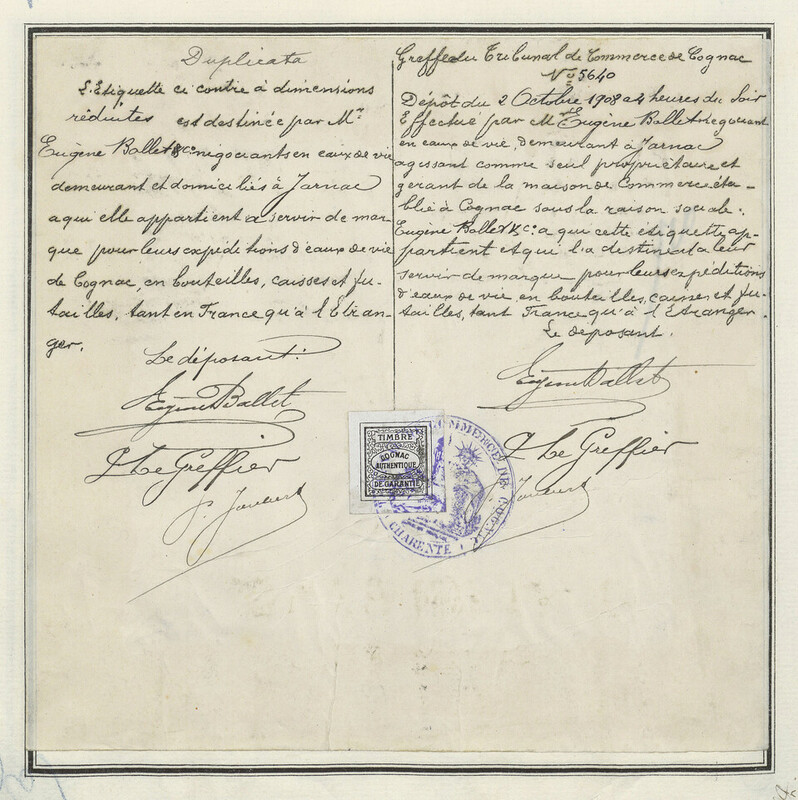 Duplicata
L'Etiquette ci contre à dimensions
réduites est destinée par Mr
Eugène Ballet & Cie négociants en eaux de vie
demeurant et domiciliés à Jarnac
a qui elle appartient a servir de mar-
que pour leurs expéditions d'eaux de vie
de Cognac, en bouteilles, caisses et fu-
tailles, tant en France qu'à l'Etran-
ger.
Le déposant:
Eugène Ballet
Le Greffier
Greffe du Tribunal de Commerce de Cognac
No 5640
Dépôt du 2 Octobre 1908 a 4 heures du Soir
Effectué par Mr Eugène Ballet négociant
en eaux de vie, demeurant à Jarnac
agissant comme seul propriétaire et
gerant de la maison de Commerce éta-
blie à Cognac sous la raison sociale.
Eugène Ballet & Cie a qui cette étiquette ap-
partient et qui l'a destinée a leur
servir de marque pour leurs expéditions
d'eaux de vie, en bouteilles, caisses et fu-
tailles, tant France qu'à l'Etranger.
Le déposant.
Eugène Ballet
Le Greffier
TIMBRE
COGNAC
AUTHENTIQUE
DE GARANTIE
COMMERCE DE COGNAC
CHARENTE